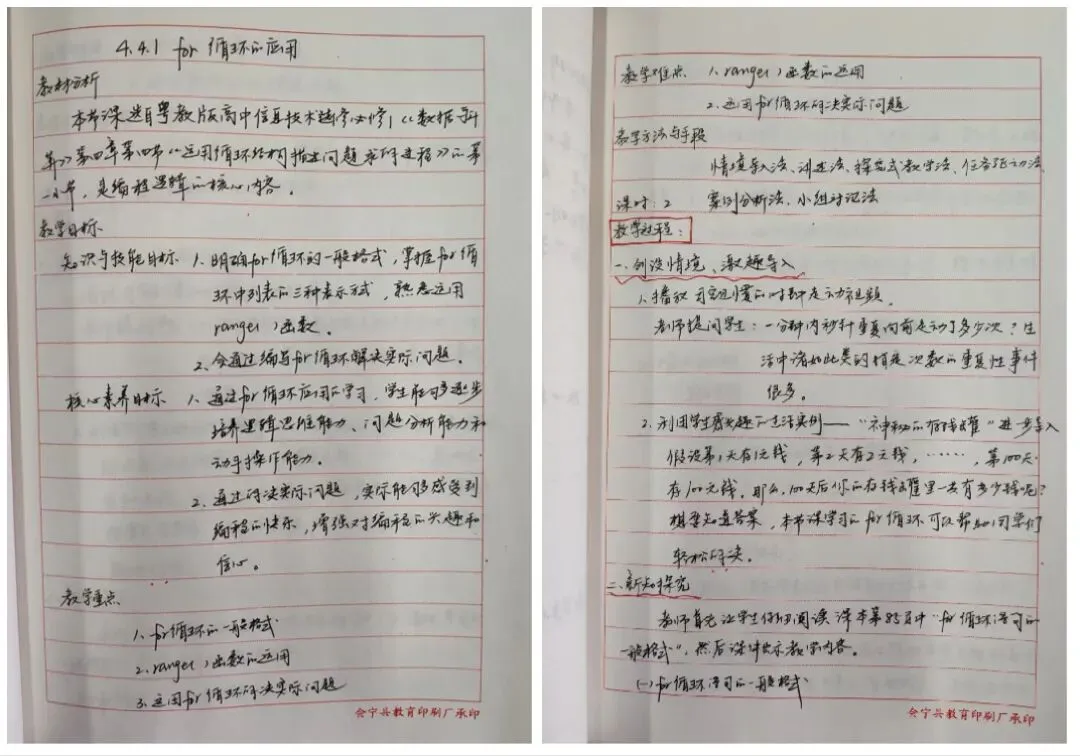 4.4.1 for循环的应用
教材分析
本节课选自粤教版高中信息技术选修必修1《数据与计
算》第四章第四节《运用循环结构描述问题求解过程》的第
一小节，是编程逻辑的核心内容。
教学目标
知识与技能目标 1. 明确for循环的一般格式，掌握for循
环中列表的三种表示方式，熟悉运用
range( )函数。
2. 会通过编写for循环解决实际问题。
核心素养目标 1. 通过for循环应用的学习，学生能够逐步
培养逻辑思维能力、问题分析能力和
动手操作能力。
2. 通过解决实际问题，实际能够感受到
编程的快乐，增强对编程的兴趣和
信心。
教学重点
1. for循环的一般格式
2. range( )函数的运用
3. 运用for循环解决实际问题
会宁县教育印刷厂承印
教学难点 1. range( )函数的运用
2. 运用for循环解决实际问题
教学方法与手段
情境导入法、讲述法、探究式教学法、任务驱动法
课时：2 案例分析法、小组讨论法
教学过程：
一、创设情境、激趣导入
1. 播放 的时钟走动视频。
老师提问学生：一分钟内秒针重复向前走动了多少次？生
活中诸如此类的指定次数的重复性事件
很多。
2. 利用学生感兴趣的生活实例——“神秘的存钱罐”进一步导入
假设第1天存1元钱，第2天存2元钱，……，第100天
存100元钱。那么，100天后你的存钱罐里一共有多少钱呢？
想要知道答案，本节课学习的for循环可以帮助同学们
轻松解决。
二、新知探究
老师首先让学生仔细阅读课本第85页中“for循环语句的
一般格式”，然后课件展示教学内容。
(一) for循环语句的一般格式
会宁县教育印刷厂承印